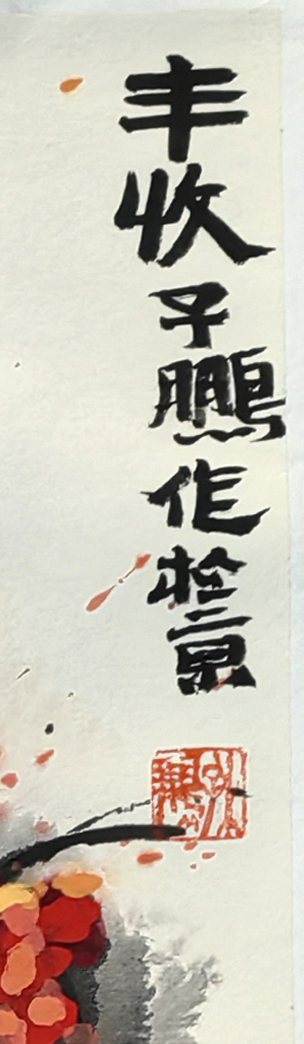 丰收子鹏作于京